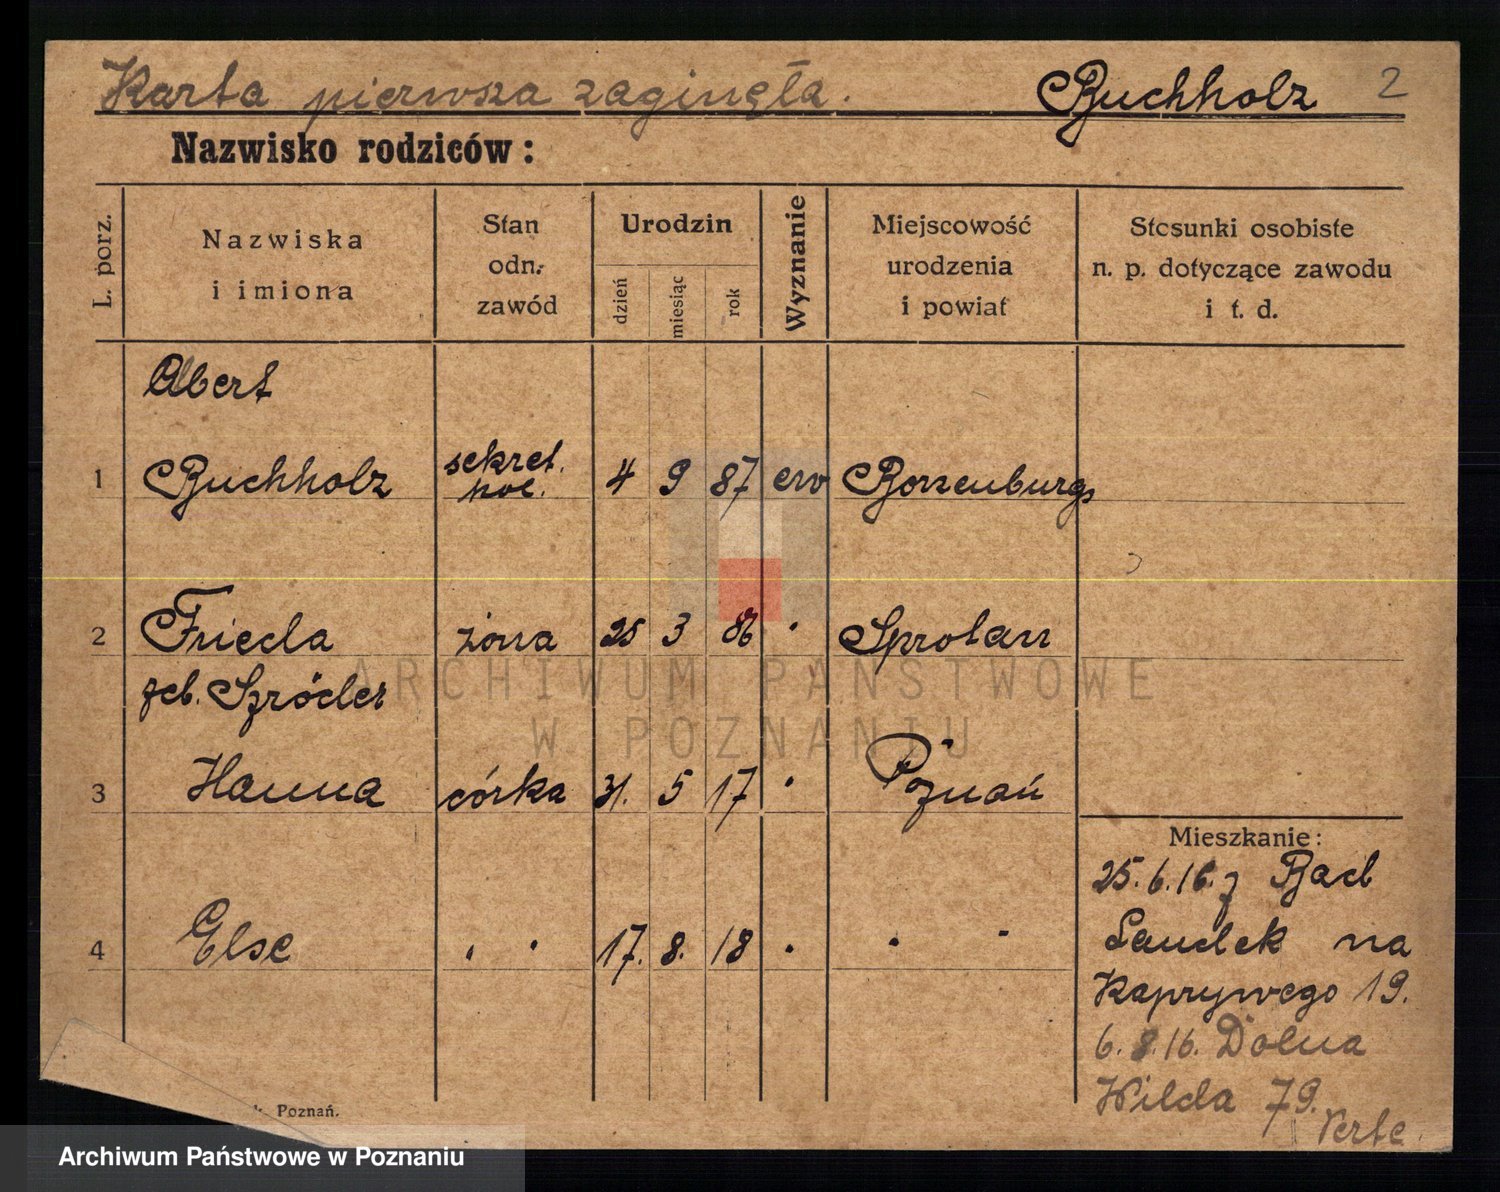 Karta pierwsza zaginęła. Buchholz 2
Nazwisko rodziców :
L. porz.
Nazwiska
i imiona
Stan
odn.
zawód
Urodzin
dzień
miesiąc
rok
Wyznanie
Miejscowość
urodzenia
i powiat
Stosunki osobiste
n. p. dotyczące zawodu
i t. d.
Albert
1 Buchholz sekret. 4 9 87 ew
2 Frieda żona 25 3 86 " Sprotau
3 Hanna córka 31. 5 17 " Poznań
4 Else " " 17. 8. 18 " " "
Mieszkanie:
25.6.16. z Bad
Landek na
Kaprywego 19.
6.8.16. Dolna
Wilda 79.
Verte
Poznań.
ARCHIWUM PAŃSTWOWE
W POZNANIU
Archiwum Państwowe w Poznaniu